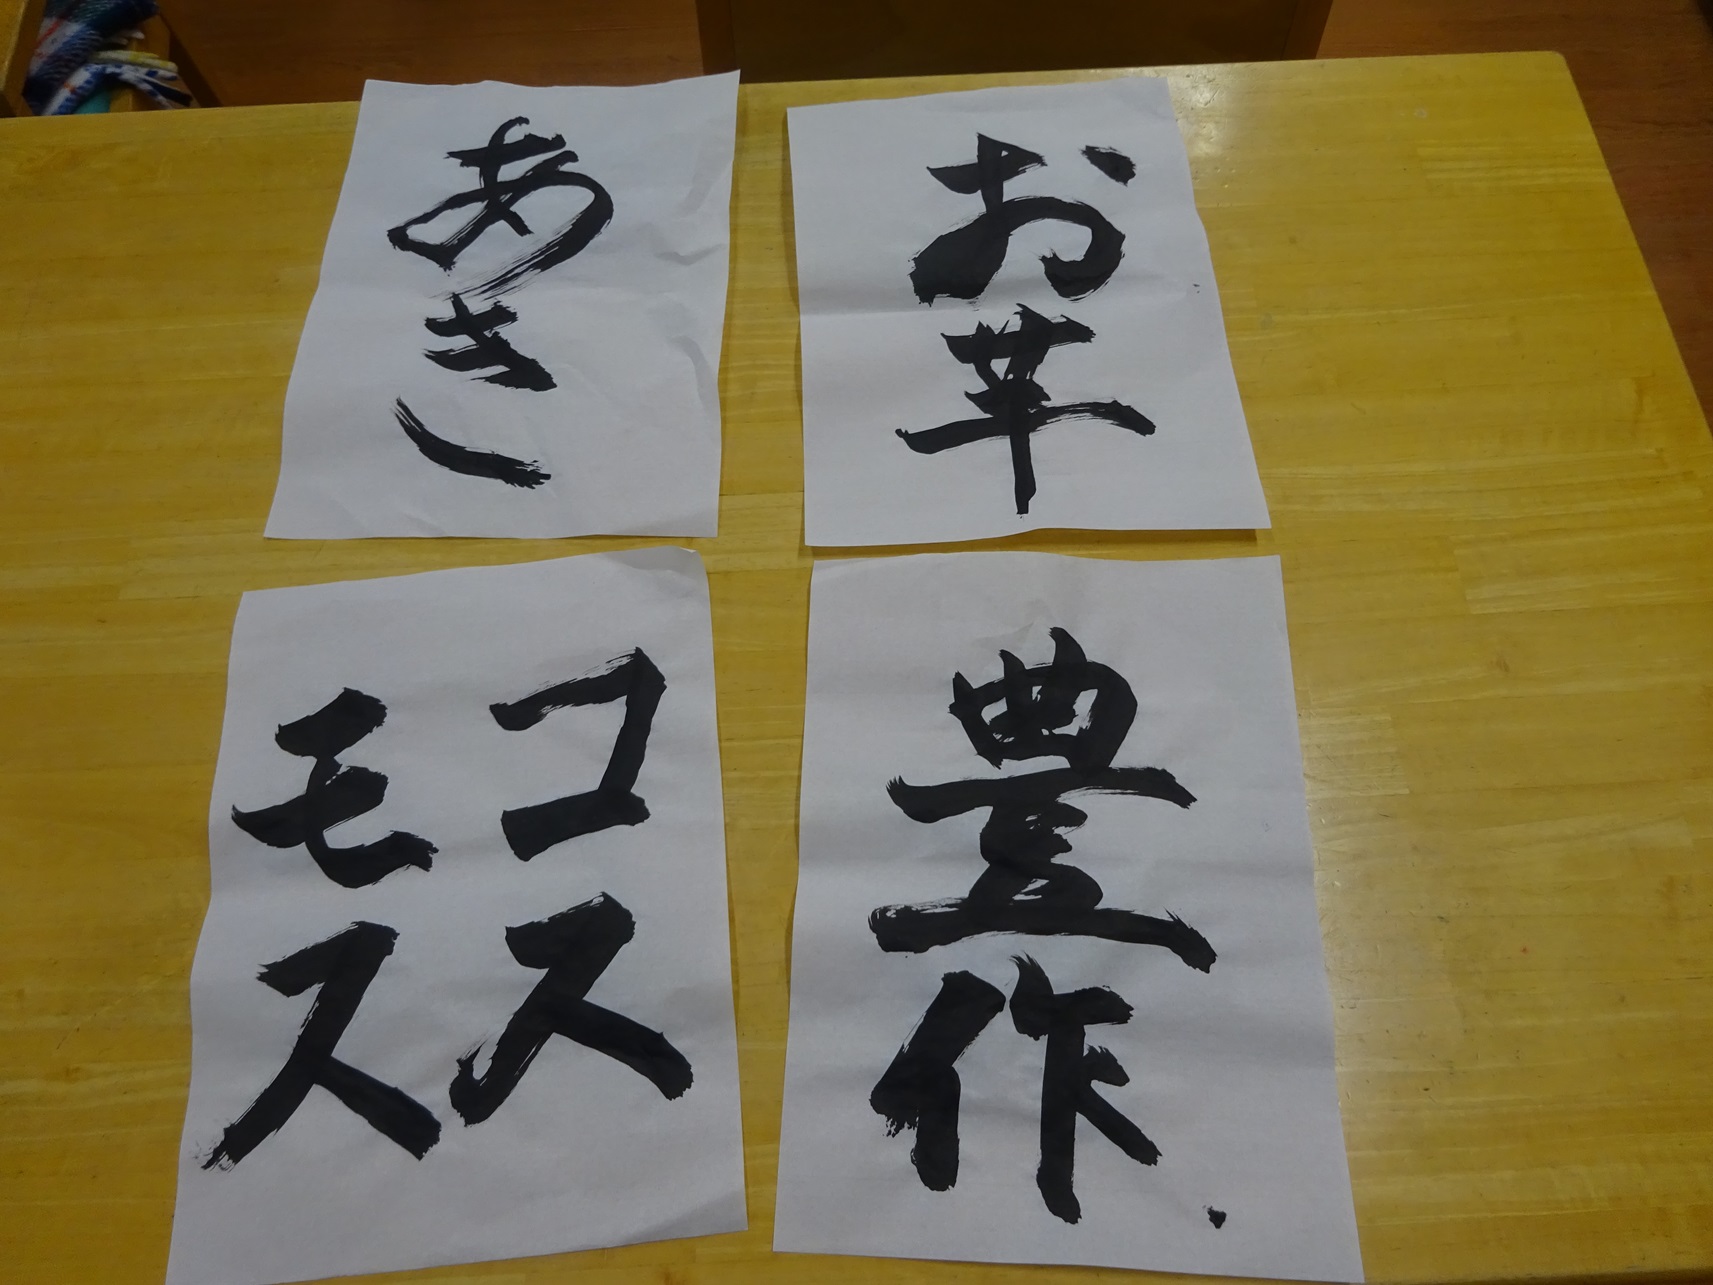 お芋
あき
豊作
コス
モス